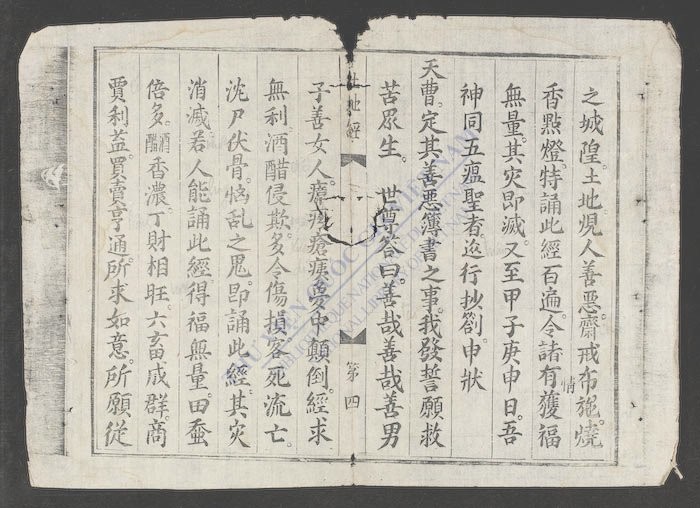 之城隍。土地。烥人善惡。齋戒布施。燒
香點燈。特誦此經百遍。令諸有情獲福
無量。其灾即滅。又至甲子庚申日。吾
神同五瘟聖者巡行抄劄。申狀
天曹。定其善惡簿書之事。我發誓願救
苦眾生。 世尊答曰。善哉善哉善男
土地經
第四
子善女人。瘴瘧瘡痍夢中顛倒。經求
無利。酒醋侵欺。多令傷損客死流亡。
沈尸伏骨。惱乱之鬼。即誦此經。其灾
消滅。若人能誦此經。得福無量。田蚕
倍多。酒醋香濃。丁財相旺。六畜成群。商
賈利益。買賣亨通。所求如意。所願從